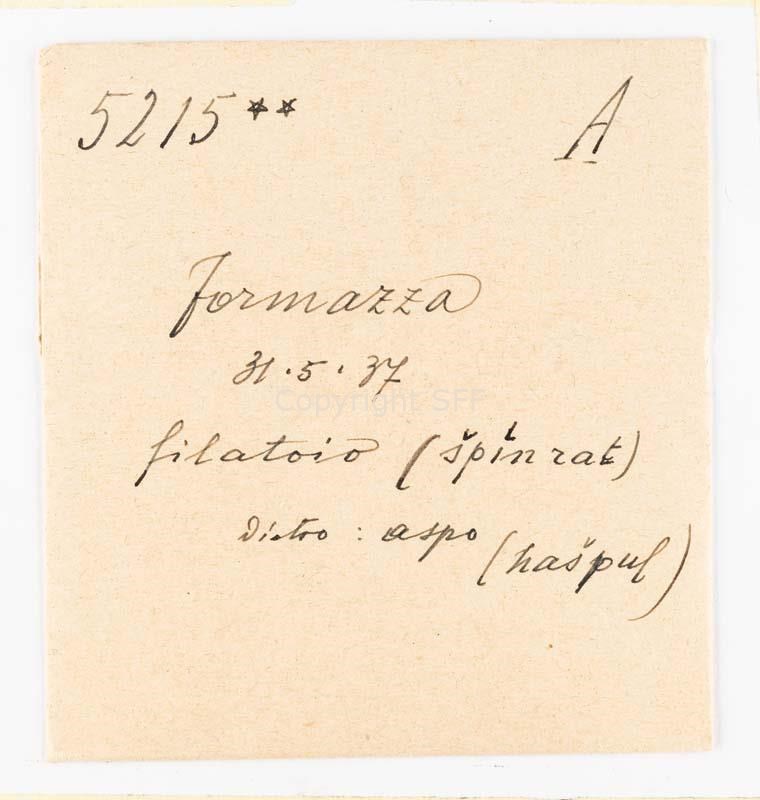 5215** A
Formazza
31.5.37
Copyright SFF
filatoio (špinrat)
dietro : aspo (hašpul)